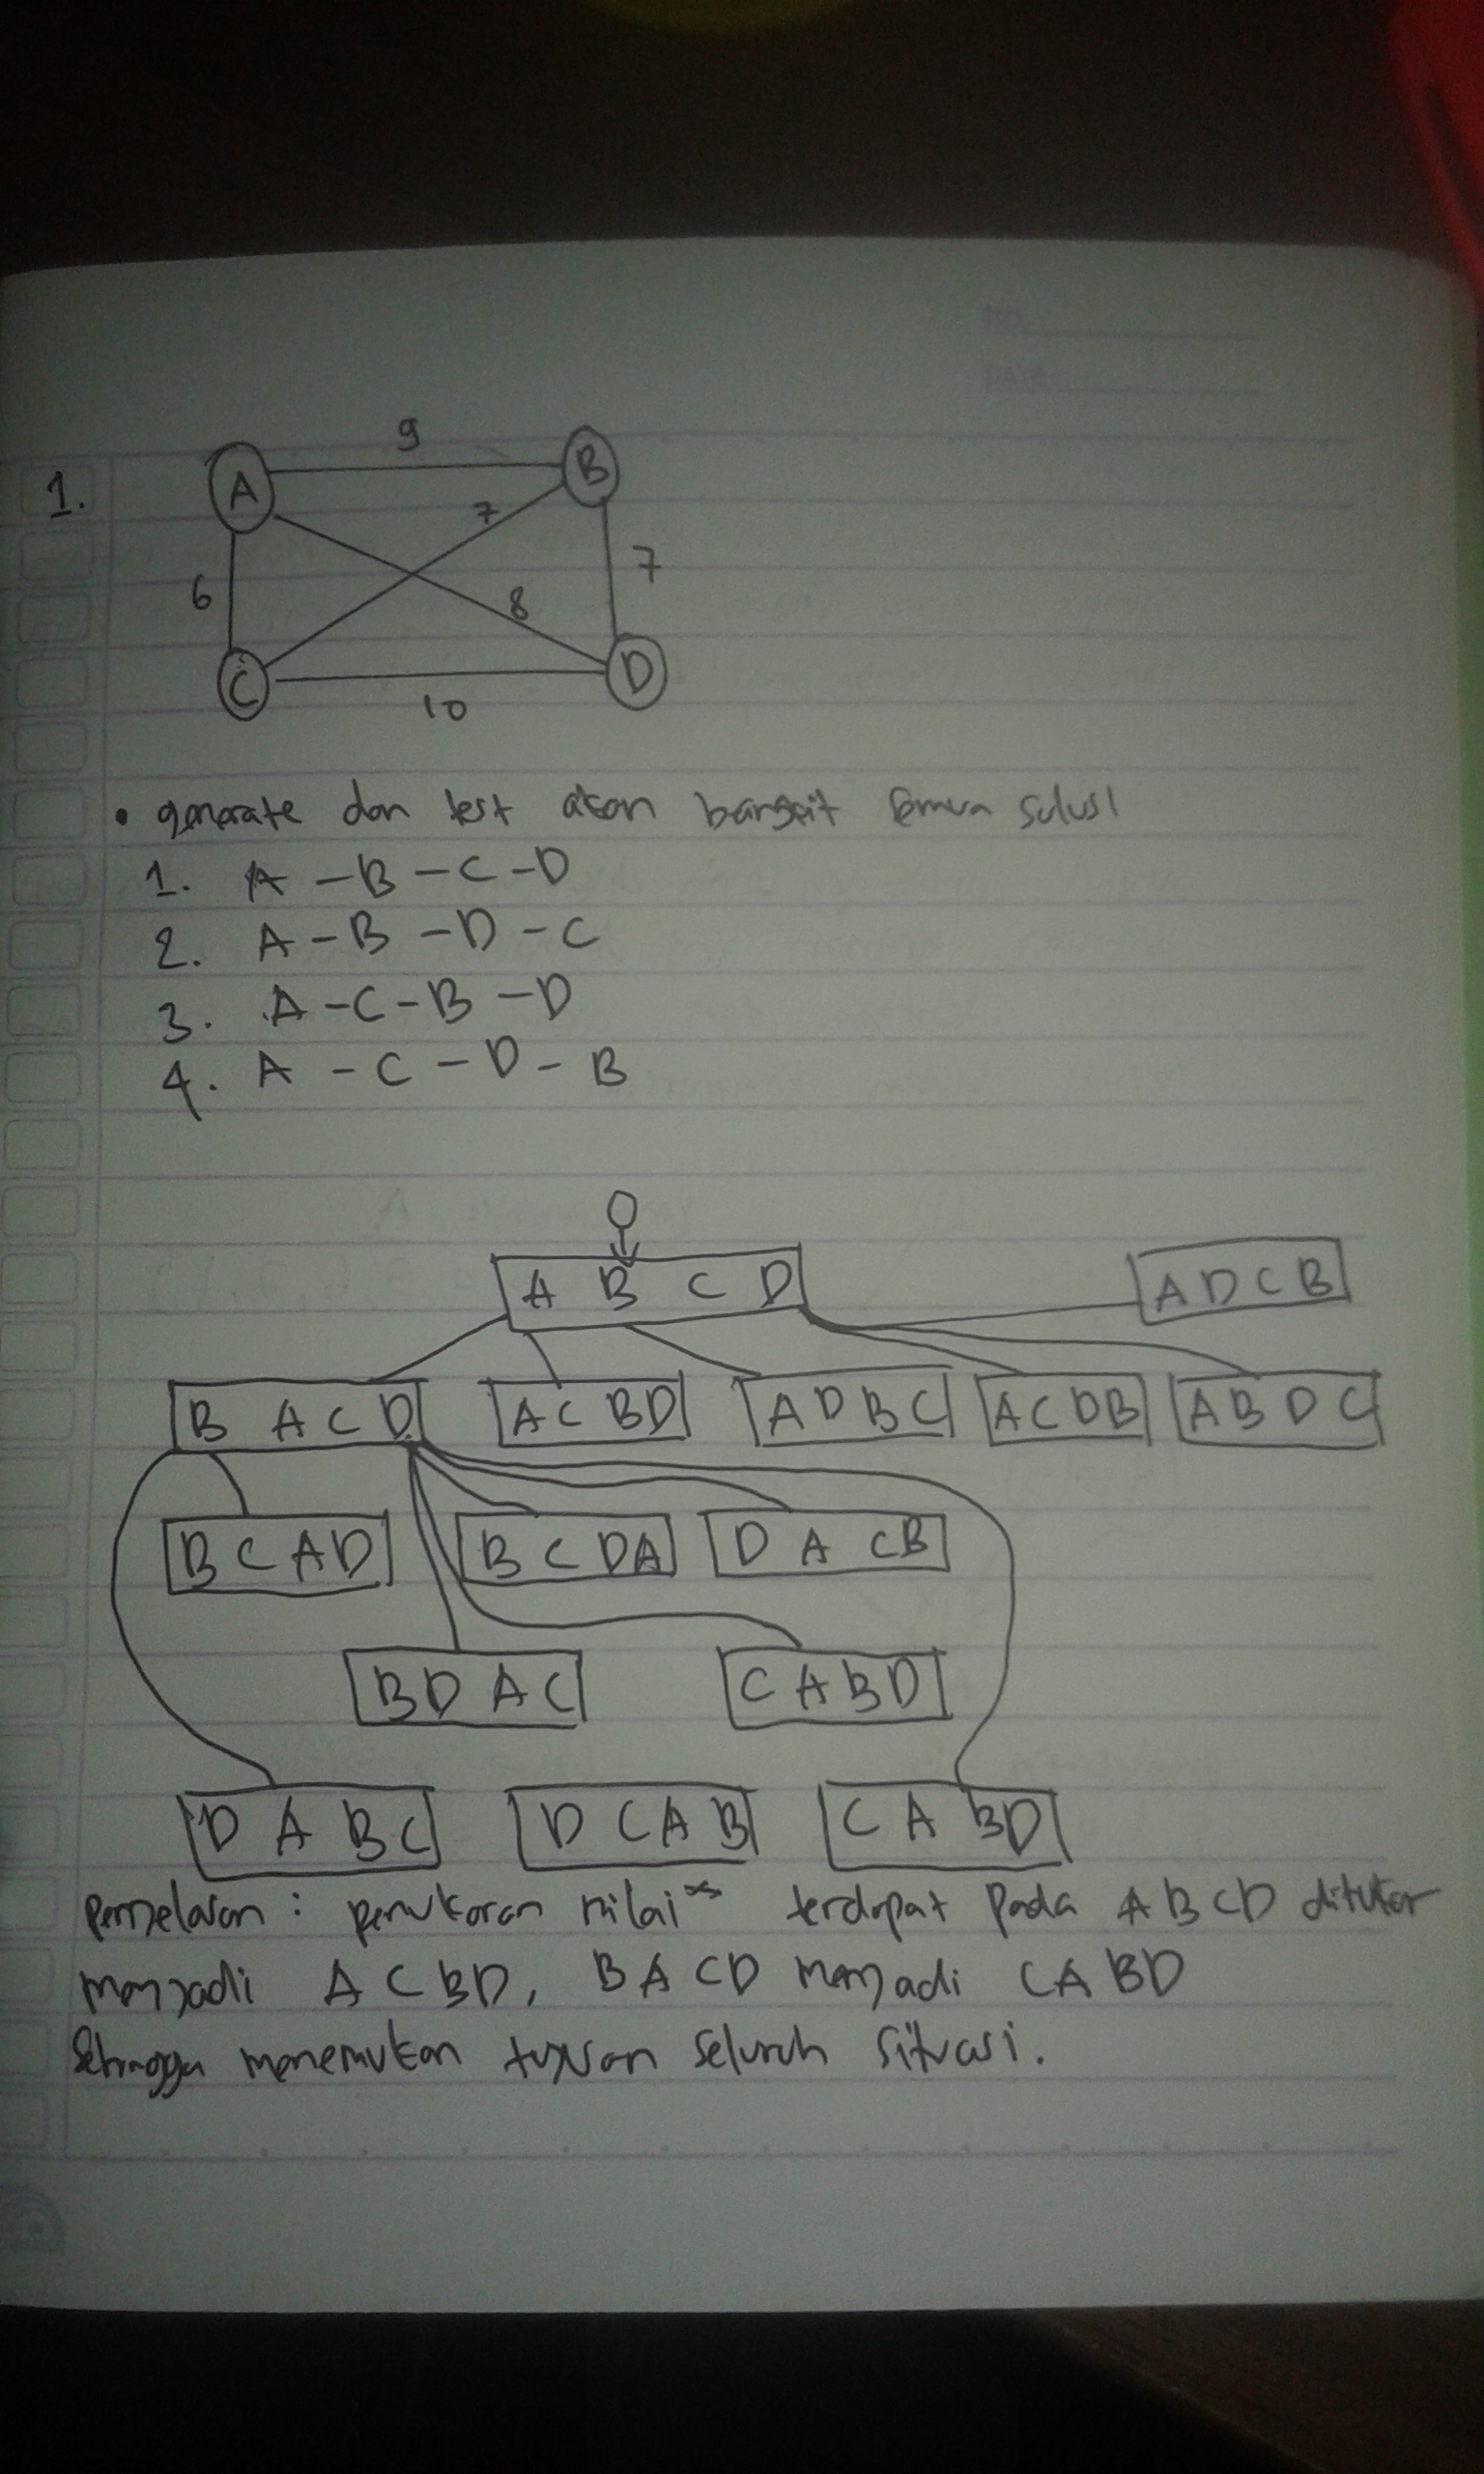 NO.
DATE
1.
A 9 B
7
7
6
8
C 10 D
• generate dan test akan bangkit semua solusi
1. A - B - C - D
2. A - B - D - C
3. A - C - B - D
4. A - C - D - B
A B C D
A D C B
B A C D A C B D A D B C A C D B A B D C
B C A D B C D A D A C B
B D A C C A B D
D A B C D C A B C A B D
penjelasan : penukaran nilai terdapat pada A B C D ditukar
menjadi A C B D, B A C D menjadi C A B D
Sehingga menemukan tujuan seluruh situasi.